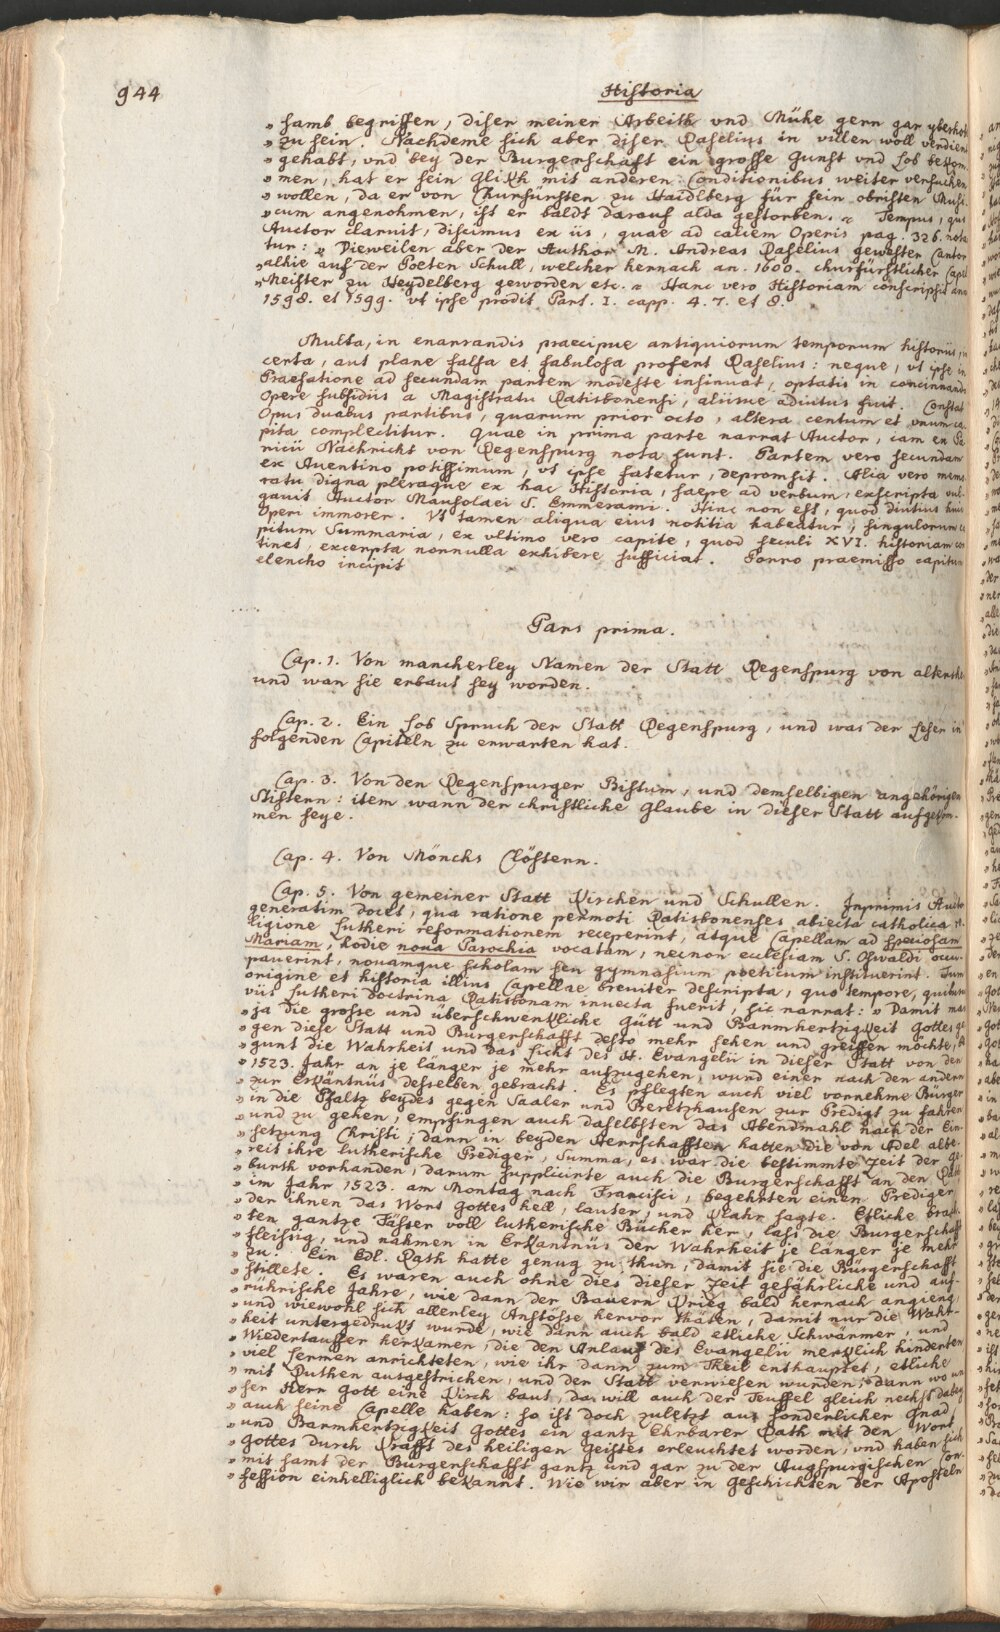 944
Historia
„ samb begriffen, diser meiner Arbeith vnd Mühe gern gar yberhob
„ zu sein. Nachdeme sich aber diser Raselius in villen woll verdient
„ gehabt, vnd bey der Burgerschaft ein grosse Gunst vnd Lob bekom
„ men, hat er sein Glikh mit anderen Conditionibus weiter versuchen
„ wollen, da er von Churfürsten zu Haidlberg für sein obristen Musi
„ cum angenohmen, ist er baldt darauf alda gestorben. „ Tempus, quo
Auctor claruit, discimus ex iis, quae ad calcem Operis pag. 326. nota
tur: „ Dieweilen aber der Author M. Andreas Raselius gewester Cantor
„ alhie auf der Poeten Schull, welcher hernach an. 1600. churfürstlicher Capel
„ Meister zu Heydelberg geworden etc. „ Hanc vero Historiam conscripsit an
1598. et 1599. vt ipse prodit Part. I. capp. 4. 7. et 8.
Multa, in enarrandis praecipue antiquiorum temporum historiis, in
certa, aut plane falsa et fabulosa profert Raselius: neque, vt ipse in
Praefatione ad secundam partem modeste insinuat, optatis in concinnando
Opere subsidiis a Magistratu Ratisbonensi, aliisue adiutus fuit. Constat
Opus duabus partibus, quarum prior octo, altera centum et vnum ca
pita complectitur. Quae in prima parte narrat Auctor, iam ex Pa
ricii Nachricht von Regenspurg nota sunt. Partem vero secundam
ex Auentino potissimum, vt ipse fatetur, depromsit. Alia vero memo
ratu digna pleraque ex hac Historia, saepe ad verbum, exscripta vul
gauit Auctor Mausolaei S. Emmerami. Hinc non est, quod diutius huic
Operi immorer. Vt tamen aliqua eius notitia habeatur, singulorum ca
pitum Summaria, ex vltimo vero capite, quod seculi XVI. historiam con
tinet, excerpta nonnulla exhibere sufficiat. Porro praemisso capitum
elencho incipit
Pars prima.
Cap. 1. Von mancherley Namen der Statt Regenspurg von altersher
und wan sie erbaut sey worden.
Cap. 2. Ein Lob Spruch der Statt Regenspurg, und was der Leser in
folgenden Capiteln zu erwarten hat.
Cap. 3. Von den Regenspurger Bistum, und demselbigen angehörigen
Stiftern: item wann der christliche Glaube in dieser Statt aufgekom-
men seye.
Cap. 4. Von Mönchs Clöstern.
Cap. 5. Von gemeiner Statt Kirchen und Schullen. Inprimis Auctor
generatim docet, qua ratione permoti Ratisbonenses abiecta catholica re
ligione Lutheri reformationem receperint, atque Capellam ad speciosam
Mariam, hodie noua Parochia vocatam, necnon ecclesiam S. Oswaldi occu-
pauerint, nouamque scholam seu gymnasium poeticum instituerint. Tum
origine et historia illius Capellae breuiter descripta, quo tempore, quibus
viis Lutheri doctrina Ratisbonam inuecta fuerit, sic narrat: „ Damit man
„ ja die grosse und überschwenkliche Gütt und Barmhertzigkeit Gottes ge
„ gen diese Statt und Burgerschafft desto mehr sehen und greiffen möchte, be
„ gunt die Wahrheit und das Licht des H. Evangelii in dieser Statt von den
„ 1523. Jahr an je länger je mehr aufzugehen, wurd einer nach den andern
„ zur Erkäntnüs desselben gebracht. Es pflegten auch viel vornehme Bürger
„ in die Pfaltz beydes gegen Saaler und Beretzhausen zur Predigt zu fahren
„ und zu gehen, empfingen auch daselbsten das Abendmahl nach der Ein-
„ setzung Christi; dann in beyden Herrschafften hatten die von Adel albe-
„ reit ihre lutherische Prediger, Summa, es war die bestimmte Zeit der Ge-
„ burth vorhanden, darum supplicirte auch die Burgerschafft an den Rath
„ im Jahr 1523. am Montag nach Francisci, begehrten einen Prediger,
„ der ihnen das Wort Gottes hell, lauter, und klahr sagte. Etliche brach-
„ ten gantze Fässer voll lutherische Bücher her, lass die Burgerschafft
„ fleissig, und nahmen in Erkantnüs der Wahrheit je länger je mehr
„ zu. Ein Edl. Rath hatte genug zu thun, damit sie die Bürgerschafft
„ stillete. Es waren auch ohne dies dieser Zeit gefährliche und auf-
„ rührische Jahre, wie dann der Bauern Krieg bald hernach angieng,
„ und wiewohl sich allerley Anstösse hervor thäten, damit nur die Wahr-
„ heit untergedrukt wurde, wie dann auch bald etliche Schwärmer, und
„ Wiedertauffer herkamen, die den Anlauf des Evangelii merklich hinderten
„ viel Lermen anrichteten, wie ihr dann zum Theil enthauptet, etliche
„ mit Ruthen ausgestrichen, und der Statt verwiesen wurden; dann wo un
„ ser Herr Gott eine Kirch baut, da will auch der Teuffel gleich nechst dabey
„ auch seine Capelle haben: so ist doch zuletzt aus sonderlicher Gnad
„ und Barmhertzigkeit Gottes ein gantz Ehrbarer Rath mit den Wort
„ Gottes durch Krafft des heiligen Geistes erleuchtet worden, und haben sich
„ mit samt der Bürgerschafft gantz und gar zu der Augspurgischen Con-
„ fession einhelliglich bekannt. Wie wir aber in Geschichten der Aposteln